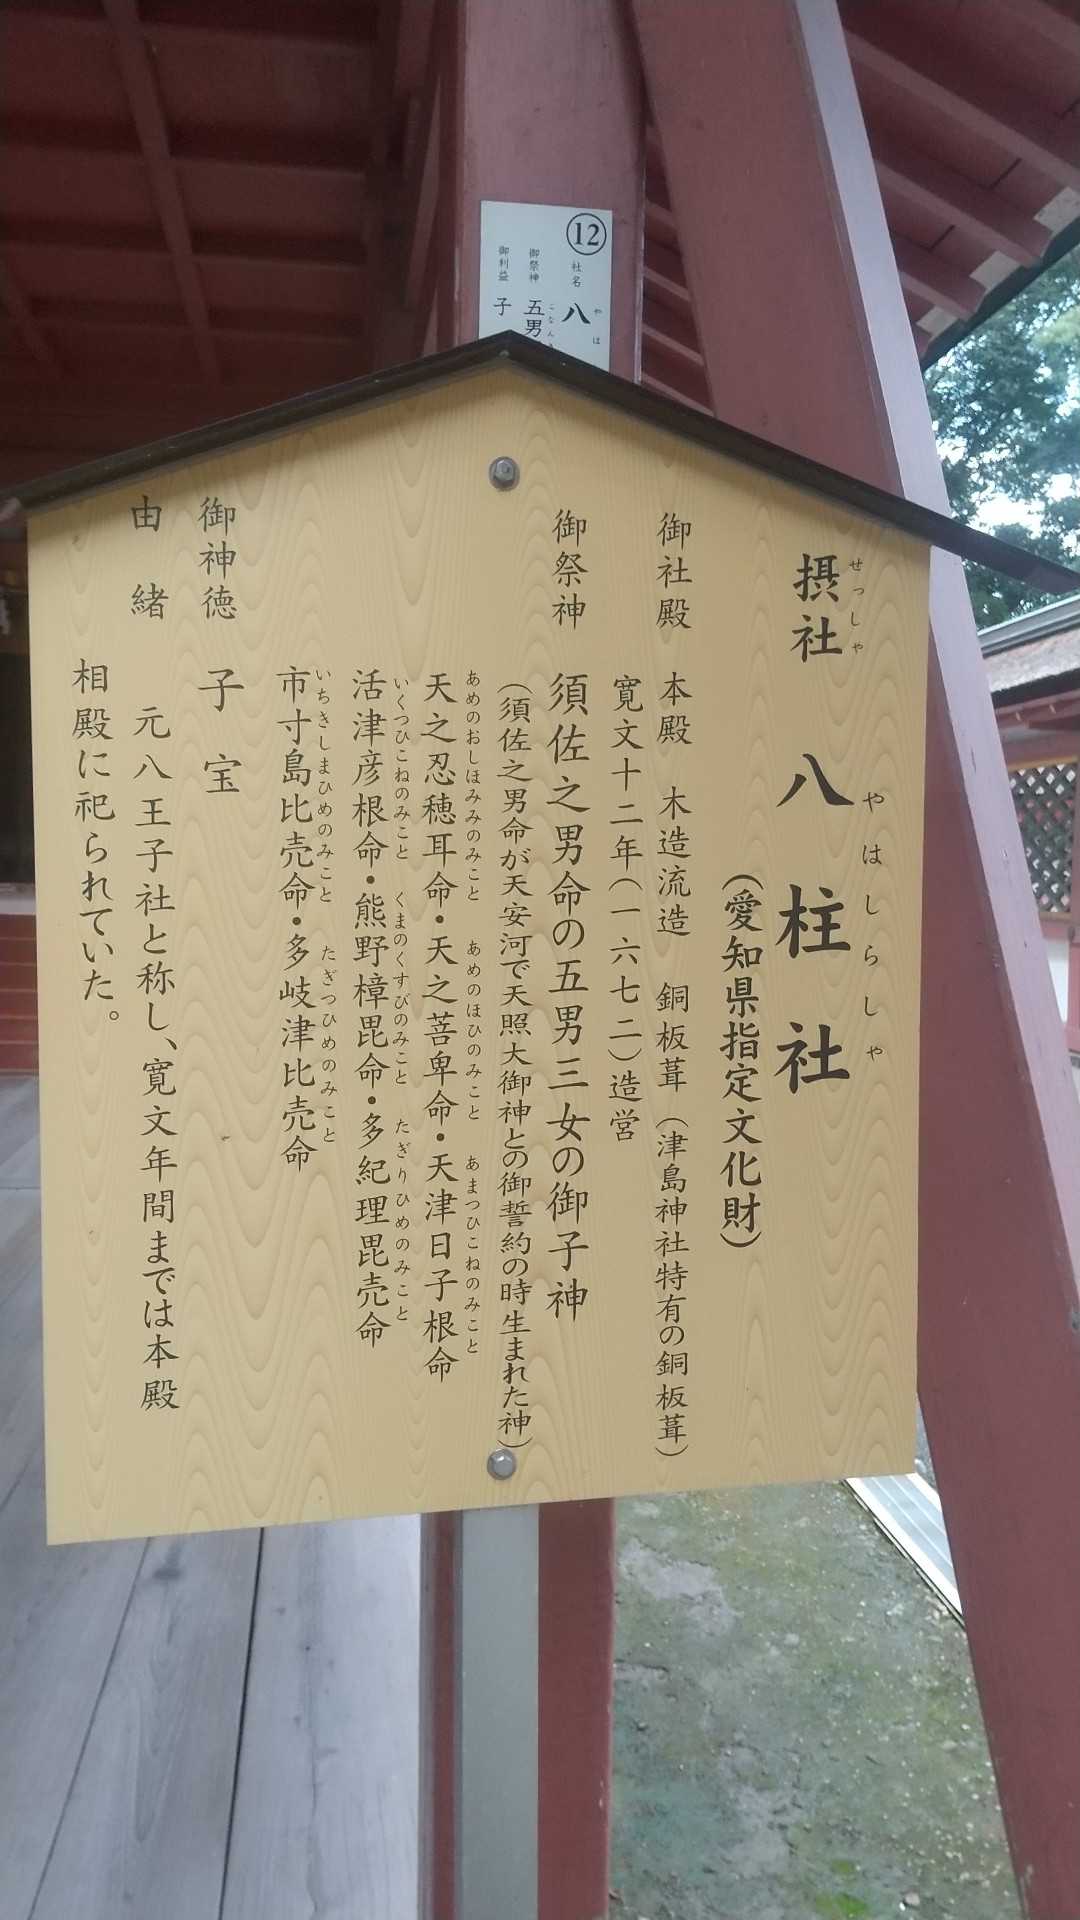 ⑫
社名 八
やは
御祭神 五男
ごなん
御利益 子
摂社 八柱社
せっしゃ やはしらしゃ
(愛知県指定文化財)
御社殿 本殿 木造流造 銅板葺 (津島神社特有の銅板葺)
寛文十二年(一六七二)造営
御祭神 須佐之男命の五男三女の御子神
(須佐之男命が天安河で天照大御神との御誓約の時生まれた神)
天之忍穂耳命・天之菩卑命・天津日子根命
あめのおしほみみのみこと あめのほひのみこと あまつひこねのみこと
活津彦根命・熊野樟毘命・多紀理毘売命
いくつひこねのみこと くまのくすびのみこと たぎりひめのみこと
市寸島比売命・多岐津比売命
いちきしまひめのみこと たぎつひめのみこと
御神徳 子宝
由緒 元八王子社と称し、寛文年間までは本殿
相殿に祀られていた。